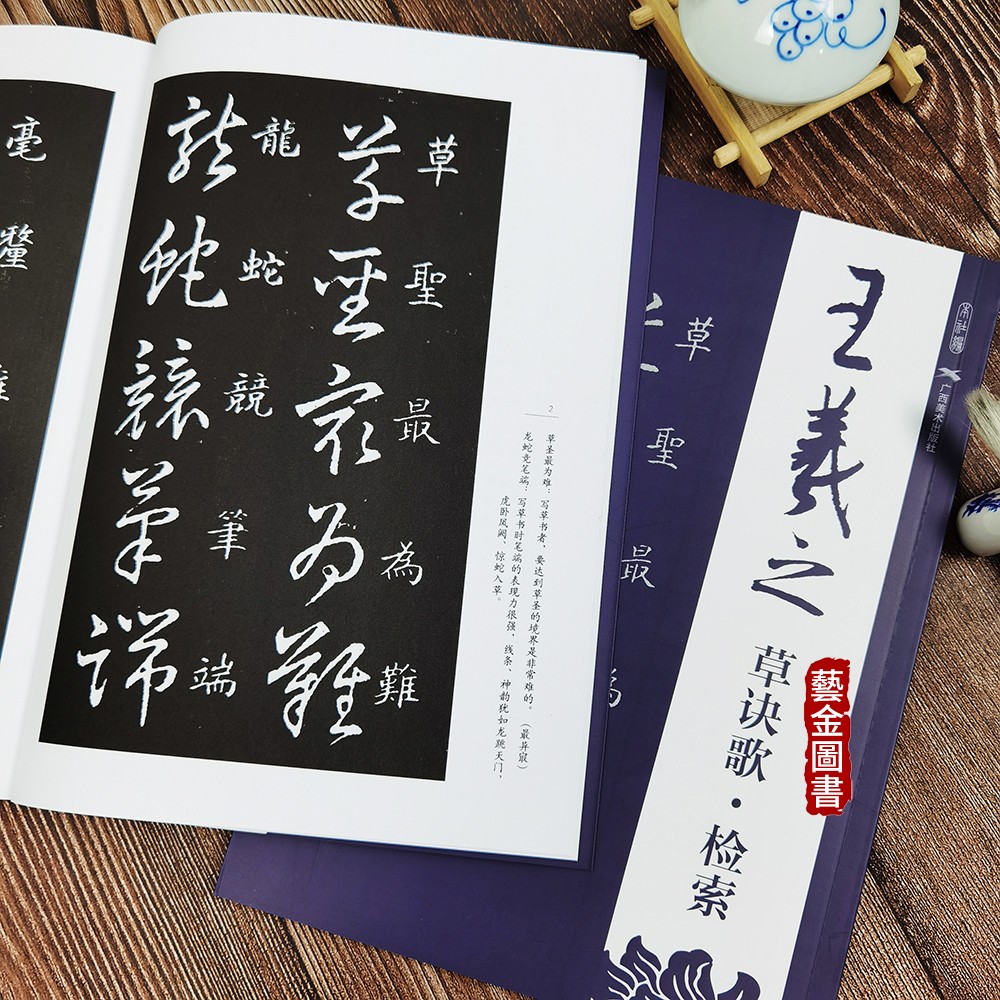 草聖最為難
草聖最為難
龍蛇競筆端
龍蛇競筆端
毫釐
2
草圣最为难：写草书者，要达到草圣的境界是非常难的。（最异寂）
龙蛇竞笔端：写草书时笔端的表现力很强，线条、神韵犹如龙跳天门，
虎卧凤阙、惊蛇入草。
本社编
广西美术出版社
王羲之
草诀歌·检索
草聖最為
藝金圖書